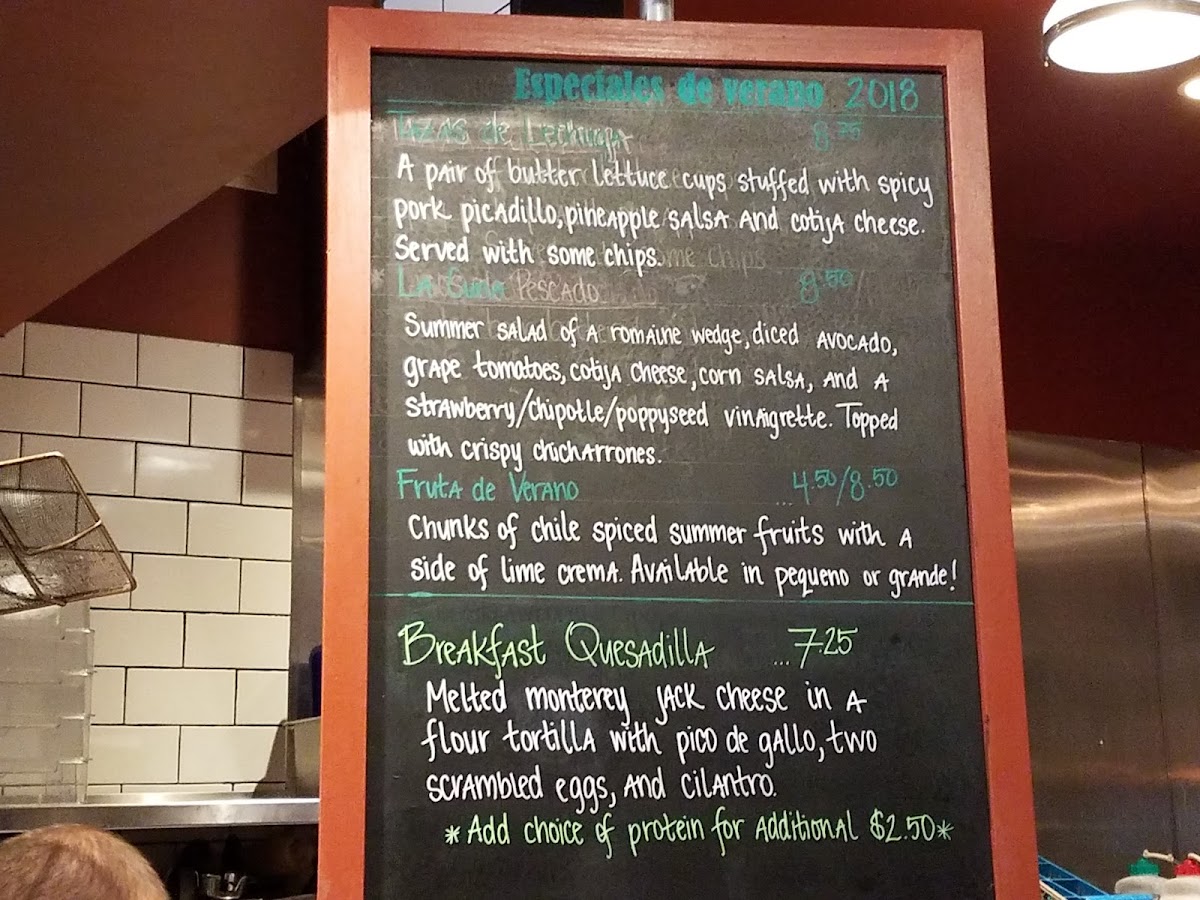 Especiales de verano 2018
Tazas de Lechuga 8.75
A pair of butter lettuce cups stuffed with spicy
pork picadillo, pineapple salsa and cotija cheese.
Served with some chips.
8.50
Summer salad of a romaine wedge, diced avocado,
grape tomatoes, cotija cheese, corn salsa, and a
strawberry/chipotle/poppyseed vinaigrette. Topped
with crispy chicharrones.
Fruta de Verano ...4.50/8.50
Chunks of chile spiced summer fruits with a
side of lime crema. Available in pequeno or grande!
Breakfast Quesadilla ...7.25
Melted monterey jack cheese in a
flour tortilla with pico de gallo, two
scrambled eggs, and cilantro.
*Add choice of protein for additional $2.50*